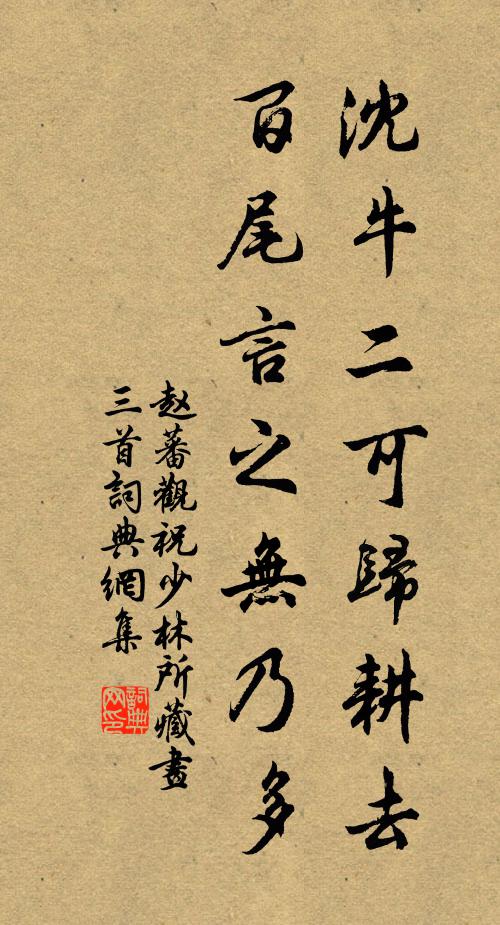 沈牛二可歸耕去
百尾言之無乃多
赵蕃觀祝少林所藏畫
三首詞典網集
詞典
网印